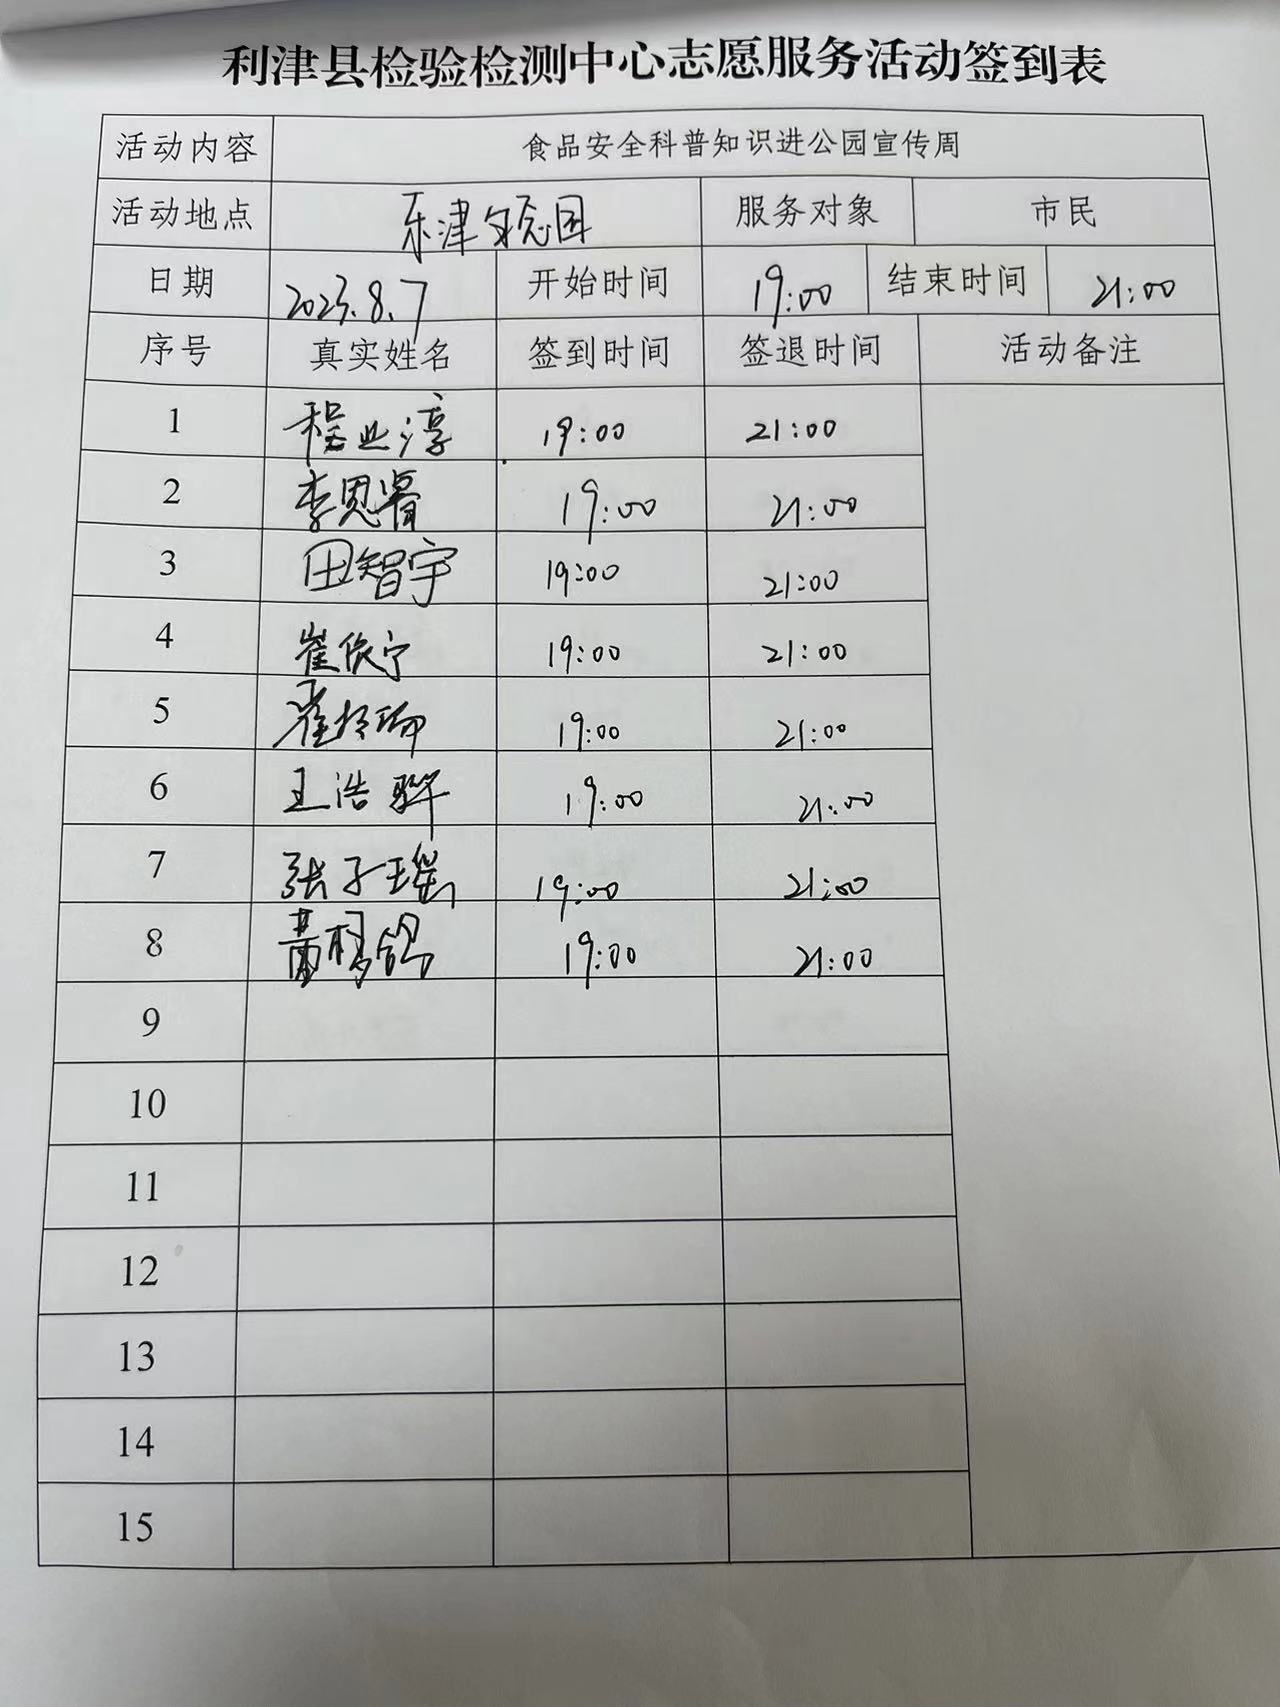 利津县检验检测中心志愿服务活动签到表
活动内容 食品安全科普知识进公园宣传周
活动地点 东津 园 服务对象 市民
日期 2023.8.7 开始时间 19:00 结束时间 21:00
序号 真实姓名 签到时间 签退时间 活动备注
1 程业淳 19:00 21:00
2 李思睿 19:00 21:00
3 田智宇 19:00 21:00
4 崔依宁 19:00 21:00
5 19:00 21:00
6 王浩骅 19:00 21:00
7 张子瑶 19:00 21:00
8 黄 19:00 21:00
9
10
11
12
13
14
15